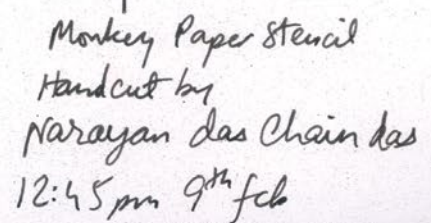 Monkey Paper Stencil
Handcut by
Narayan das Chain das
12:45 pm 9th feb